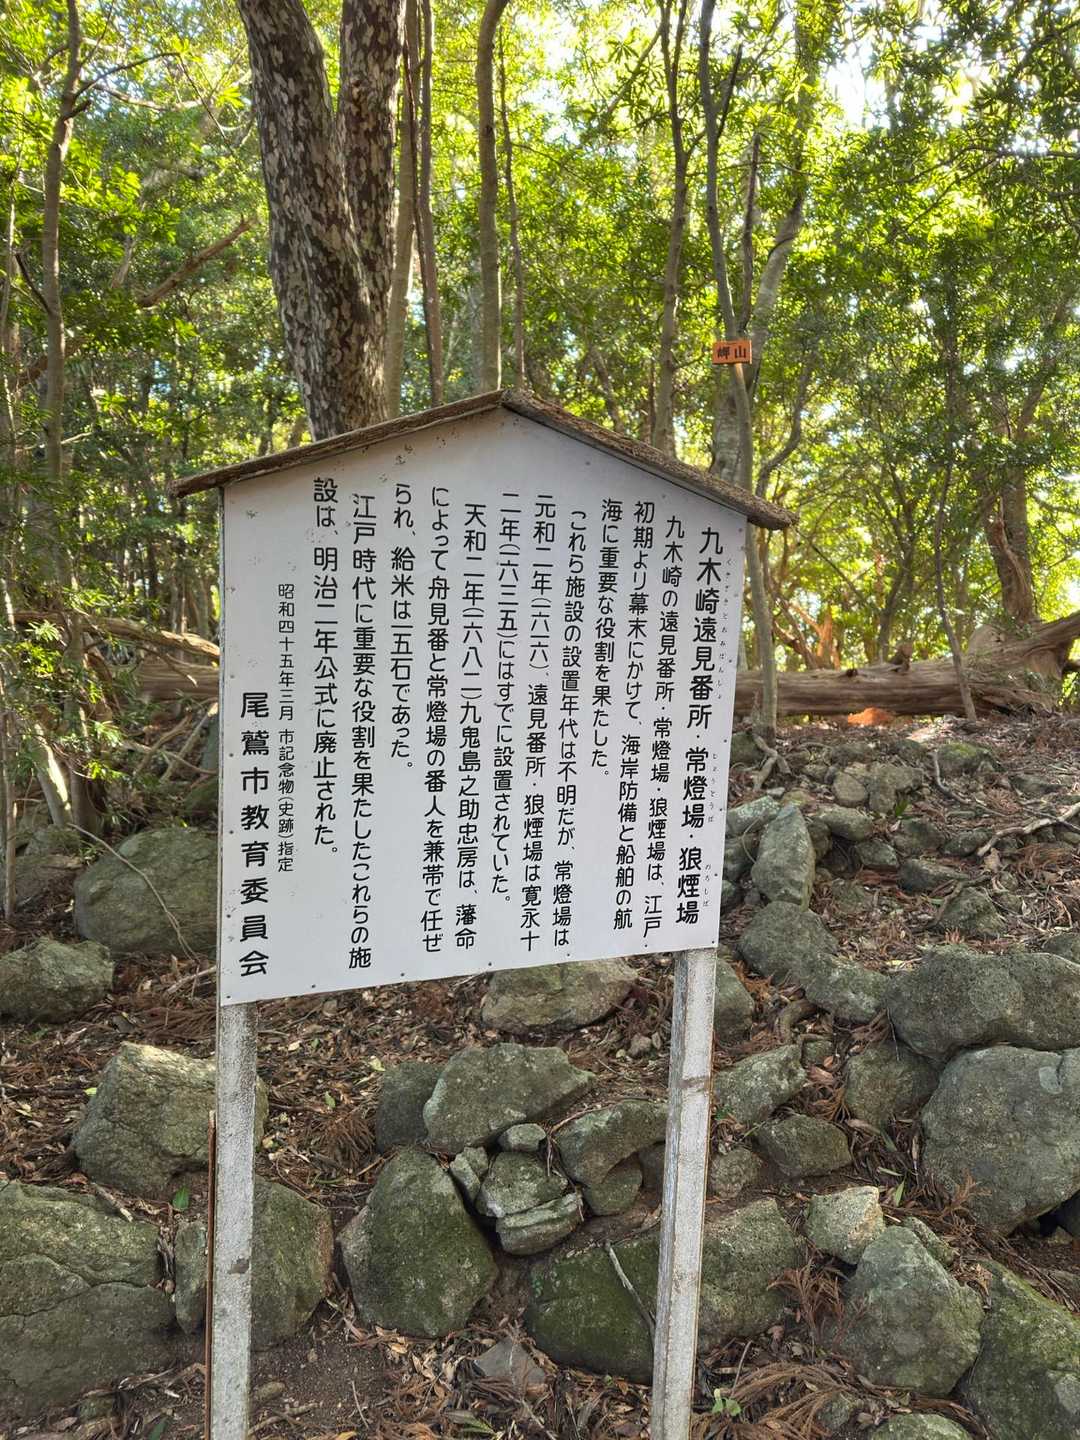 岬山
九木崎遠見番所・常燈場・狼煙場
くきざきとおみばんしょ じょうとうば のろしば
九木崎の遠見番所・常燈場・狼煙場は、江戸・
初期より幕末にかけて、海岸防備と船舶の航
海に重要な役割を果たした。
これら施設の設置年代は不明だが、常燈場は
元和二年(一六一六)、遠見番所・狼煙場は寛永十
二年(一六三五)にはすでに設置されていた。
天和二年(一六八二)九鬼島之助忠房は、藩命
によって舟見番と常燈場の番人を兼帯で任ぜ
られ、給米は一五石であった。
江戸時代に重要な役割を果たしたこれらの施
設は、明治二年公式に廃止された。
昭和四十五年三月 市記念物(史跡)指定
尾鷲市教育委員会